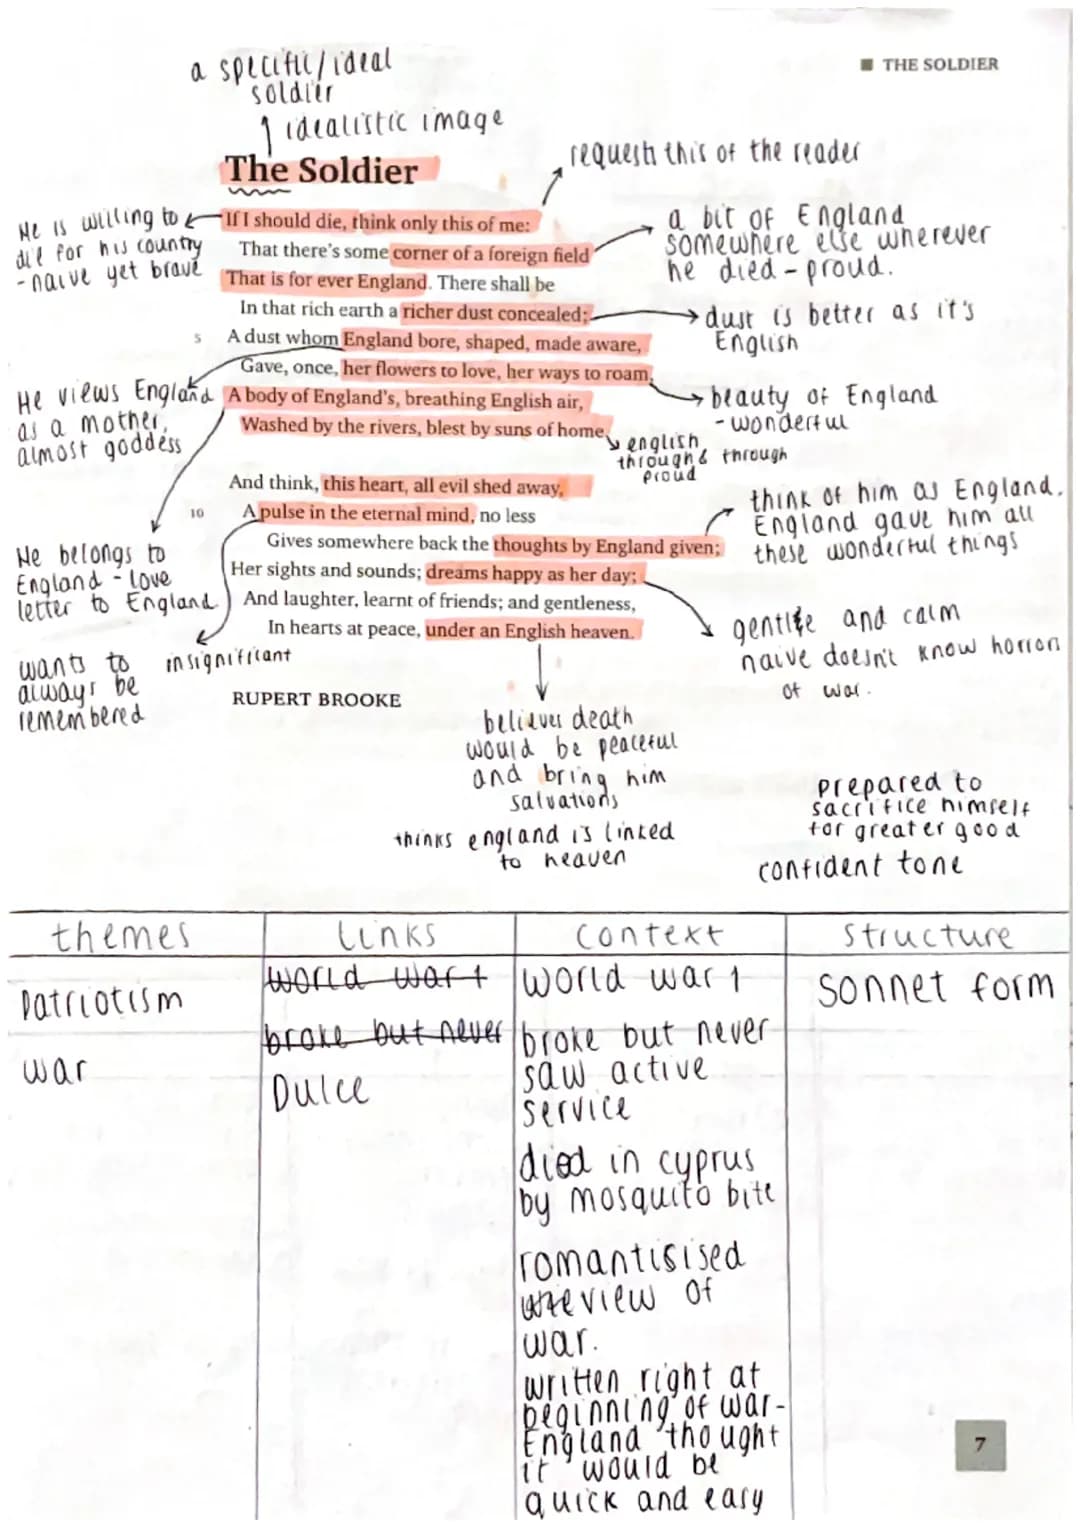 a specific/ideal
soldier
idealistic image
■ THE SOLDIER
The Soldier
request this of the reader
He is willing to
die for his country
- naive yet brave
If I should die, think only this of me:
That there's some corner of a foreign field
That is for ever England. There shall be
In that rich earth a richer dust concealed;
5 A dust whom England bore, shaped, made aware,
Gave, once, her flowers to love, her ways to roam,
A body of England's, breathing English air,
Washed by the rivers, blest by suns of home.
a bit of England
somewhere else wherever
he died - proud.
dust is better as it's
English
He views England
as a mother,
almost goddess
beauty of England
- wonderful
english
through & through
proud
And think, this heart, all evil shed away,
10 A pulse in the eternal mind, no less
Gives somewhere back the thoughts by England given;
Her sights and sounds; dreams happy as her day;
And laughter, learnt of friends; and gentleness,
In hearts at peace, under an English heaven.
think of him as England.
England gave him all
these wonderful things
He belongs to
England - love
letter to England
gentle and calm
naive doesn't know horrors
of war.
wants to
always be
remembered
insignificant
RUPERT BROOKE
believes death
would be peaceful
and bring him
salvations
thinks england is linked
to heaven
prepared to
sacrifice himself
for greater good
confident tone
themes links context structure
Patriotism world war 1 world war 1 sonnet form
war broke but never broke but never
Dulce saw active
service
died in cyprus
by mosquito bite
romantisised
view of
war.
written right at
beginning of war-
England thought
it would be
quick and easy
7